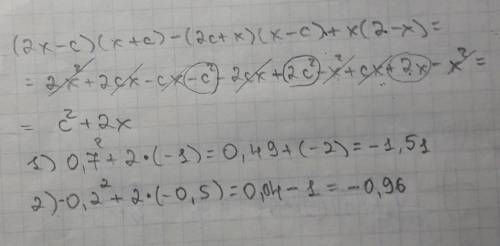 (2x-c)(x+c)-(2c+x)(x-c)+x(2-x)=
= 2x²+2cx-cx-c²-2cx+2c²-x²+cx+2x-x²=
= c²+2x
1) 0,7²+2·(-1)=0,49+(-2)=-1,51
2) -0,2²+2·(-0,5)=0,04-1=-0,96